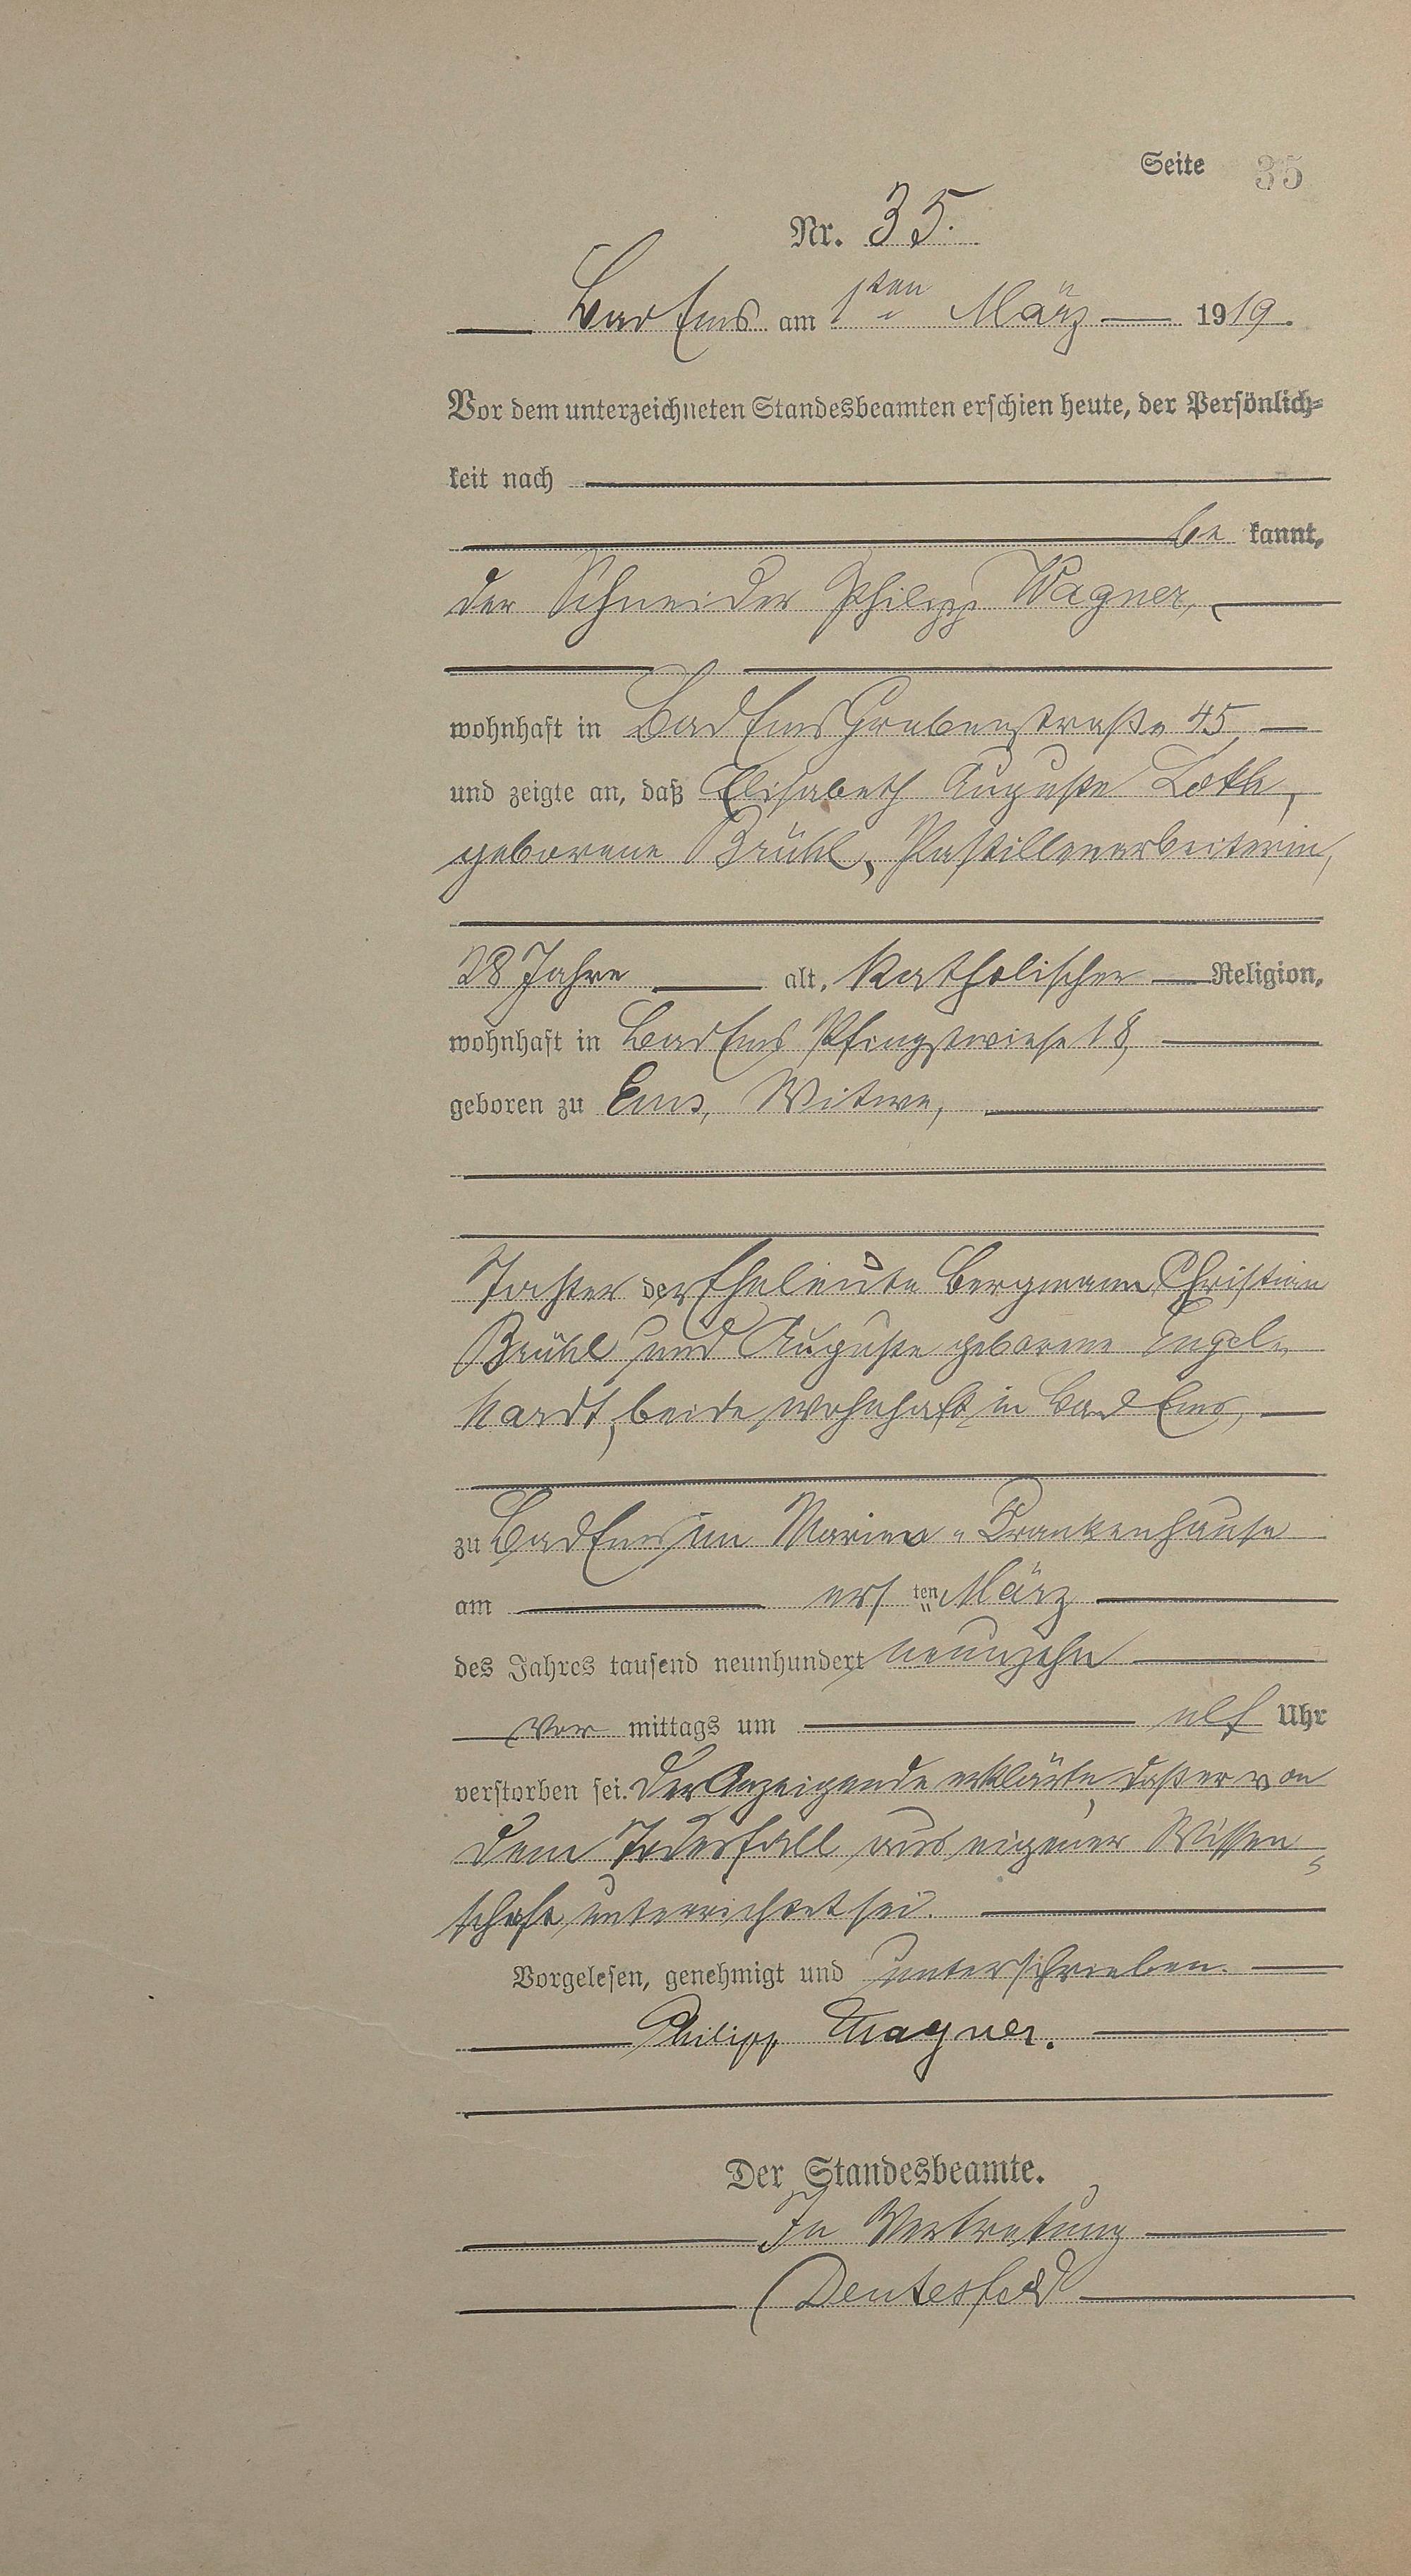 Seite 35
Nr. 35.
Bad Ems am 1ten März 1919.
Vor dem unterzeichneten Standesbeamten erschien heute, der Persönlich-
keit nach
be kannt,
der Schneider Philipp Wagner,
wohnhaft in Bad Ems Grabenstraße 45,
und zeigte an, daß Elisabeth Auguste
geborene Brühl, Pastillenarbeiterin,
28 Jahre alt, katholischer Religion,
wohnhaft in Bad Ems Pfingstwiese 18,
geboren zu Ems, Witwe,
Tochter der Eheleute Bergmann Christian
Brühl und Auguste geborene Engel-
hardt, beide wohnhaft in Bad Ems,
zu Bad Ems im Marien-Krankenhause
am ersten März
des Jahres tausend neunhundert neunzehn
vor mittags um elf Uhr
verstorben sei. Der Anzeigende erklärte, daß er von
dem Todesfall aus eigener Wissen-
schaft unterrichtet sei.
Vorgelesen, genehmigt und unterschrieben.
Philipp Wagner.
Der Standesbeamte.
In Vertretung